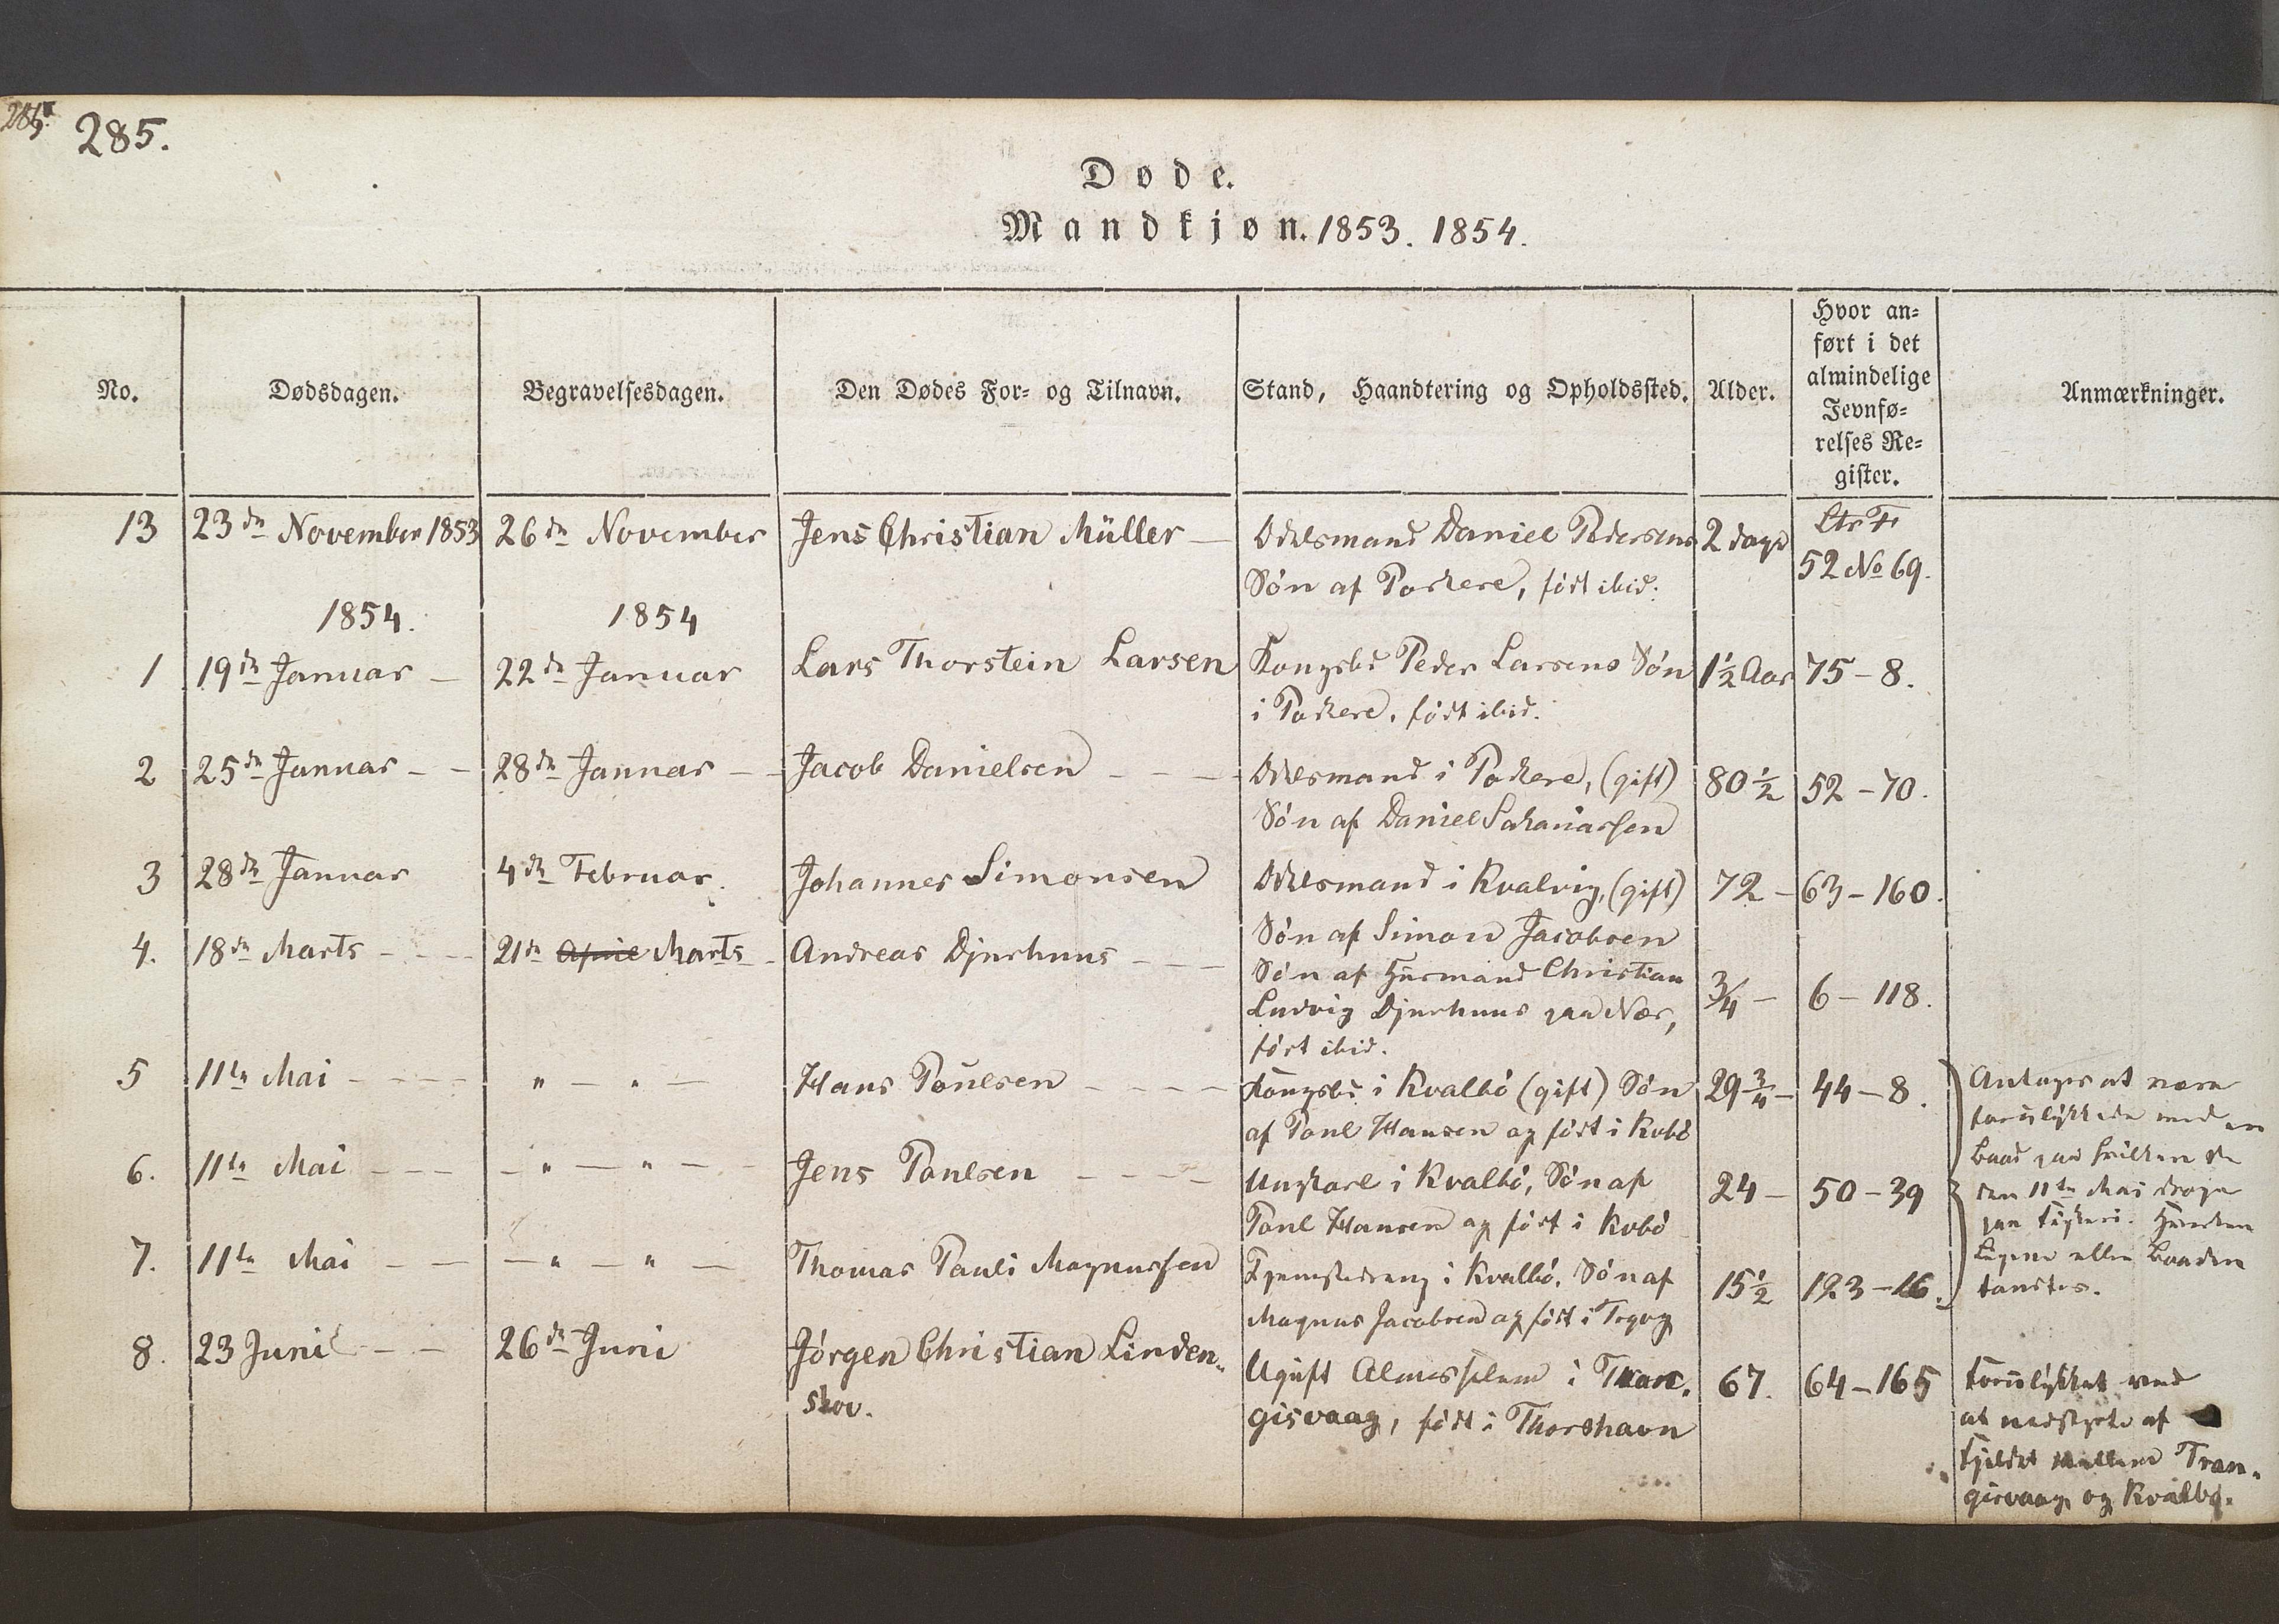 285.
Døde.
Mandkjøn. 1853. 1854.
No.
Dødsdagen.
Begravelsesdagen.
Den Dødes For- og Tilnavn.
Stand, Haandtering og Opholdssted.
Alder.
Hvor an-
ført i det
almindelige
Jevnfø-
relses Re-
gister.
Anmærkninger.
13 23de November 1853 26de November Jens Christian Müller Odelsmand Daniel Pedersens 2 dage Ltr F
Søn af Porkere, født ibid. 52 No 69.
1854. 1854
1 19de Januar 22de Januar Lars Thorstein Larsen Kongsbd Peder Larsens Søn 1½ Aar 75-8.
i Porkere, født ibid.
2 25de Januar 28de Januar Jacob Danielsen Odelsmand i Porkere, (gift) 80½ 52-70.
Søn af Daniel
3 28de Januar 4de Februar. Johannes Simonsen Odelsmand i Kvalvig, (gift) 72 63-160.
Søn af Simon Jacobsen
4. 18de Marts 21de April Marts Andreas Djurhuus Søn af Huusmand Christian ¾ 6-118.
Ludvig Djurhuus paa Næs,
født ibid.
5 11te Mai " " Hans Poulsen Kongsbd i Kvalbø (gift) Søn 29¾ 44-8.
af Poul Hansen og født i Kvbø
6. 11te Mai " " Jens Poulsen Ungkarl i Kvalbø, Søn af 24 50-39
Poul Hansen og født i Kvbø
7. 11te Mai " " Thomas Pauli Magnussen Tjenestedreng i Kvalbø, Søn af 15½ 123-16.
Magnus Jacobsen og født i
Antages at være
forulykkede med en
Baad paa hvilken de
den 11te Mai droge
paa Fiskeri. Hverken
Ligene eller Baaden
fandtes.
8. 23 Juni 26de Juni Jørgen Christian Linden- Ugift Almisselem i Tran- 67. 64-165
skov. gisvaag, født i Thorshavn
Forulykket ved
at nedstyrte af
Fjeldet mellem Tran-
gisvaag og Kvalbø.